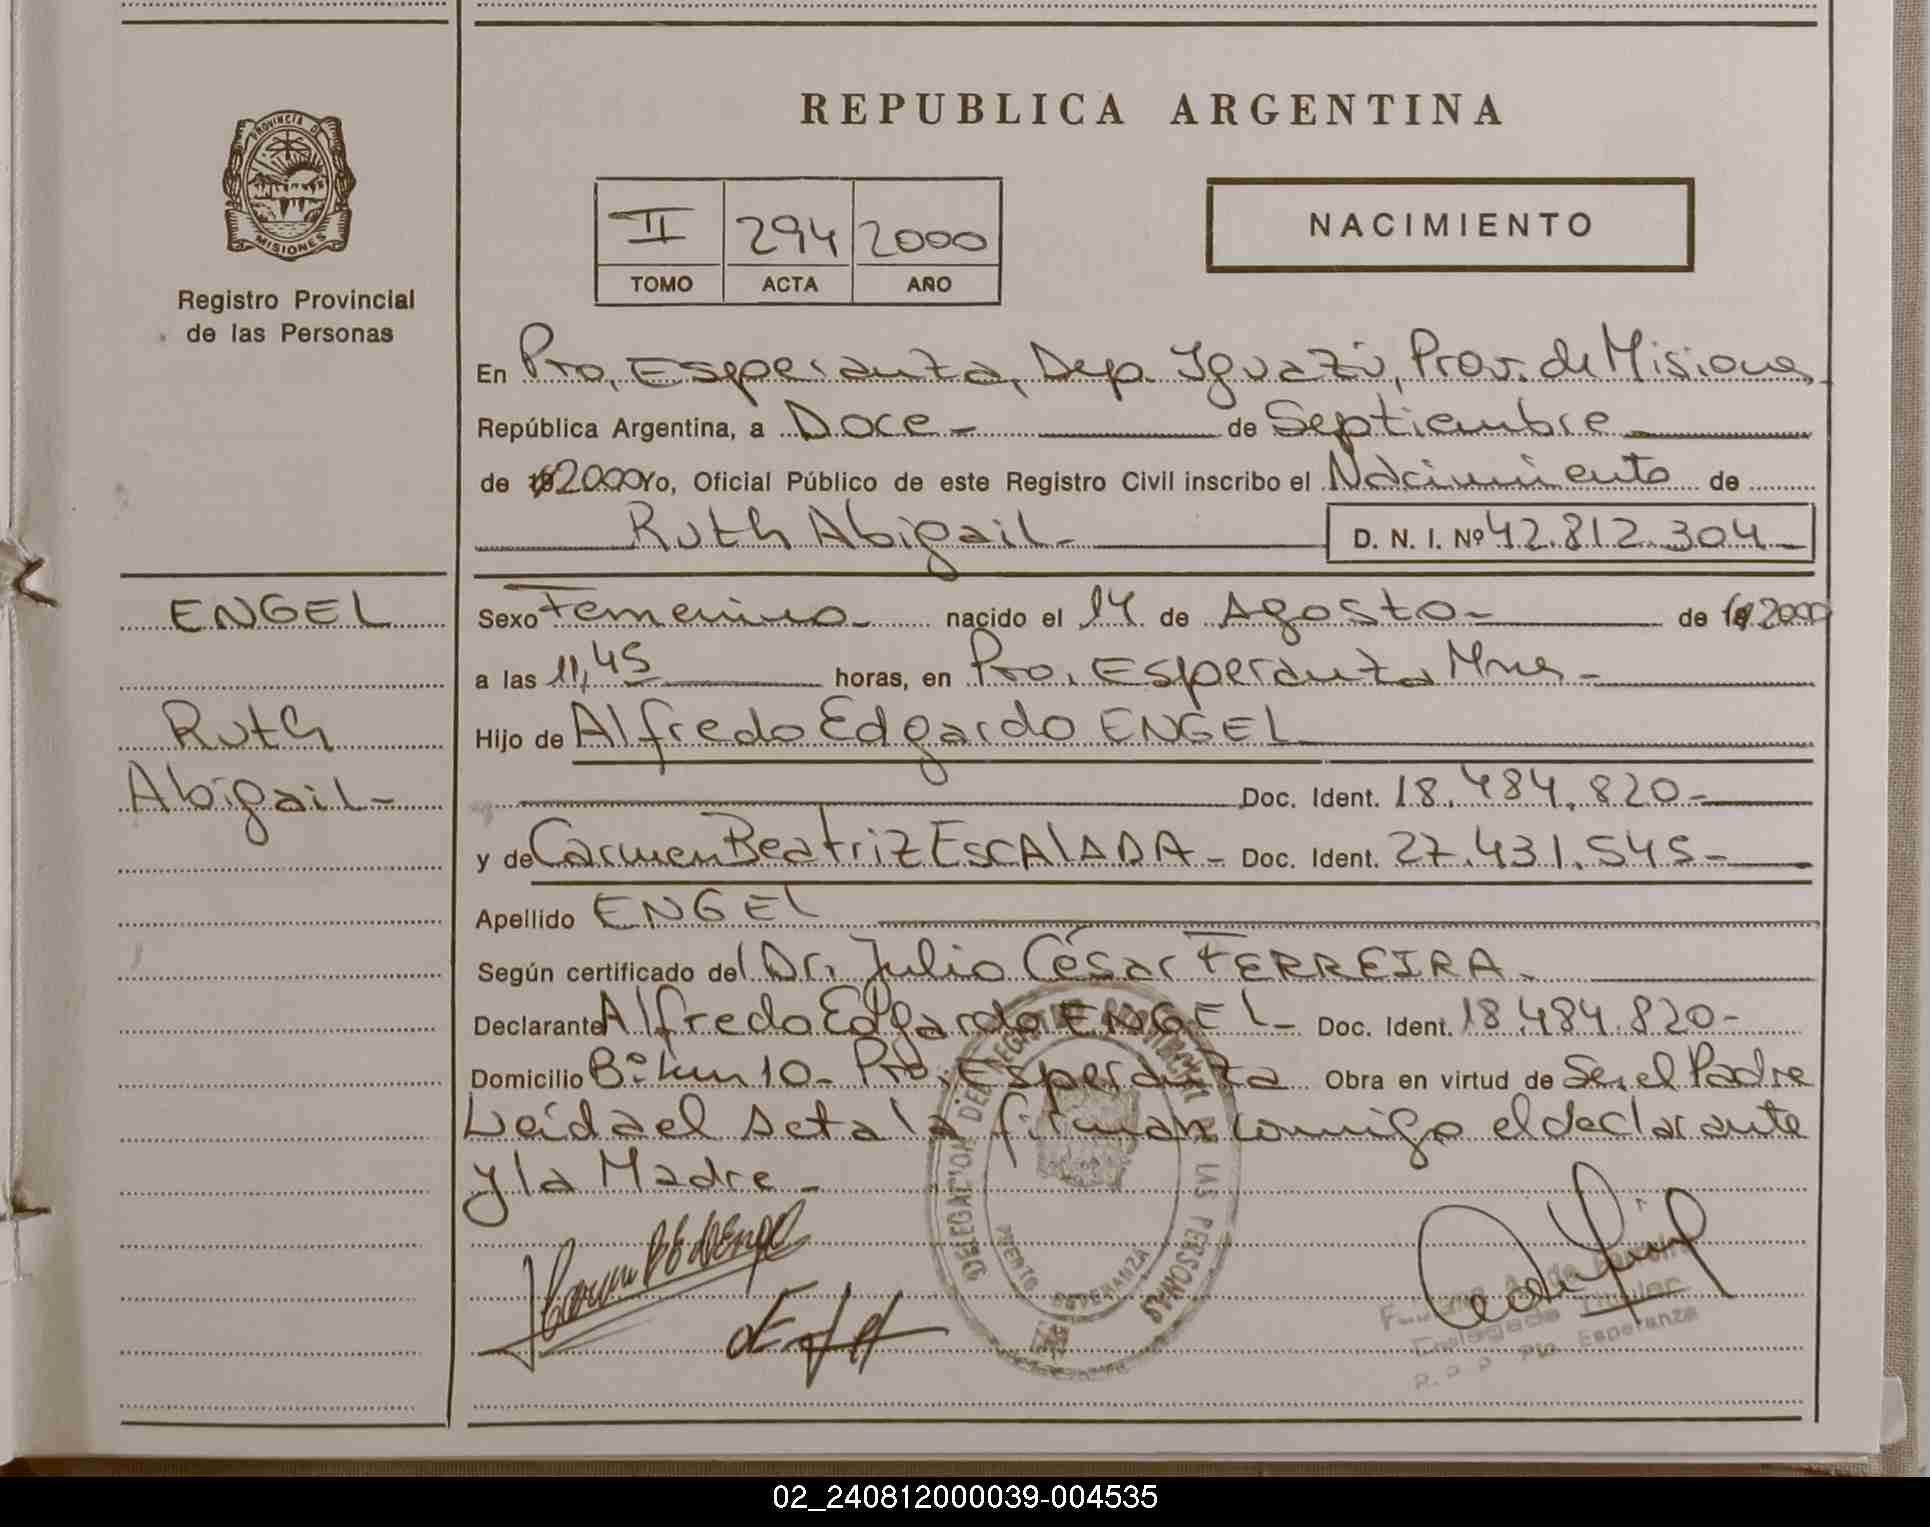 REPUBLICA ARGENTINA
PROVINCIA DE
MISIONES
Registro Provincial
de las Personas
II 294 2000
TOMO ACTA AÑO
NACIMIENTO
En Pto. Esperanza, Dep. Iguazú, Prov. de Misiones
República Argentina, a Doce - de Septiembre
de 2000 Yo, Oficial Público de este Registro Civil inscribo el Nacimiento de
Ruth Abigail - D. N. I. Nº 42.812.304
ENGEL
Ruth
Abigail -
Sexo Femenino - nacido el 14 de Agosto - de 19 2000
a las 11,45 horas, en Pto. Esperanza Mnes -
Hijo de Alfredo Edgardo ENGEL
Doc. Ident. 18.484.820 -
y de Carmen Beatriz ESCALADA - Doc. Ident. 27.431.545 -
Apellido ENGEL
Según certificado del Dr. Julio César FERREIRA -
Declarante Alfredo Edgardo ENGEL - Doc. Ident. 18.484.820 -
Domicilio Bº km 10 - Pto. Esperanza Obra en virtud de Ser el Padre
Leída el Acta la firman conmigo el declarante
y la Madre -
DELEGACION DEL REGISTRO PROVINCIAL DE LAS PERSONAS
PUERTO ESPERANZA
Delegada Titular
R. P. P. Pto Esperanza
02_240812000039-004535